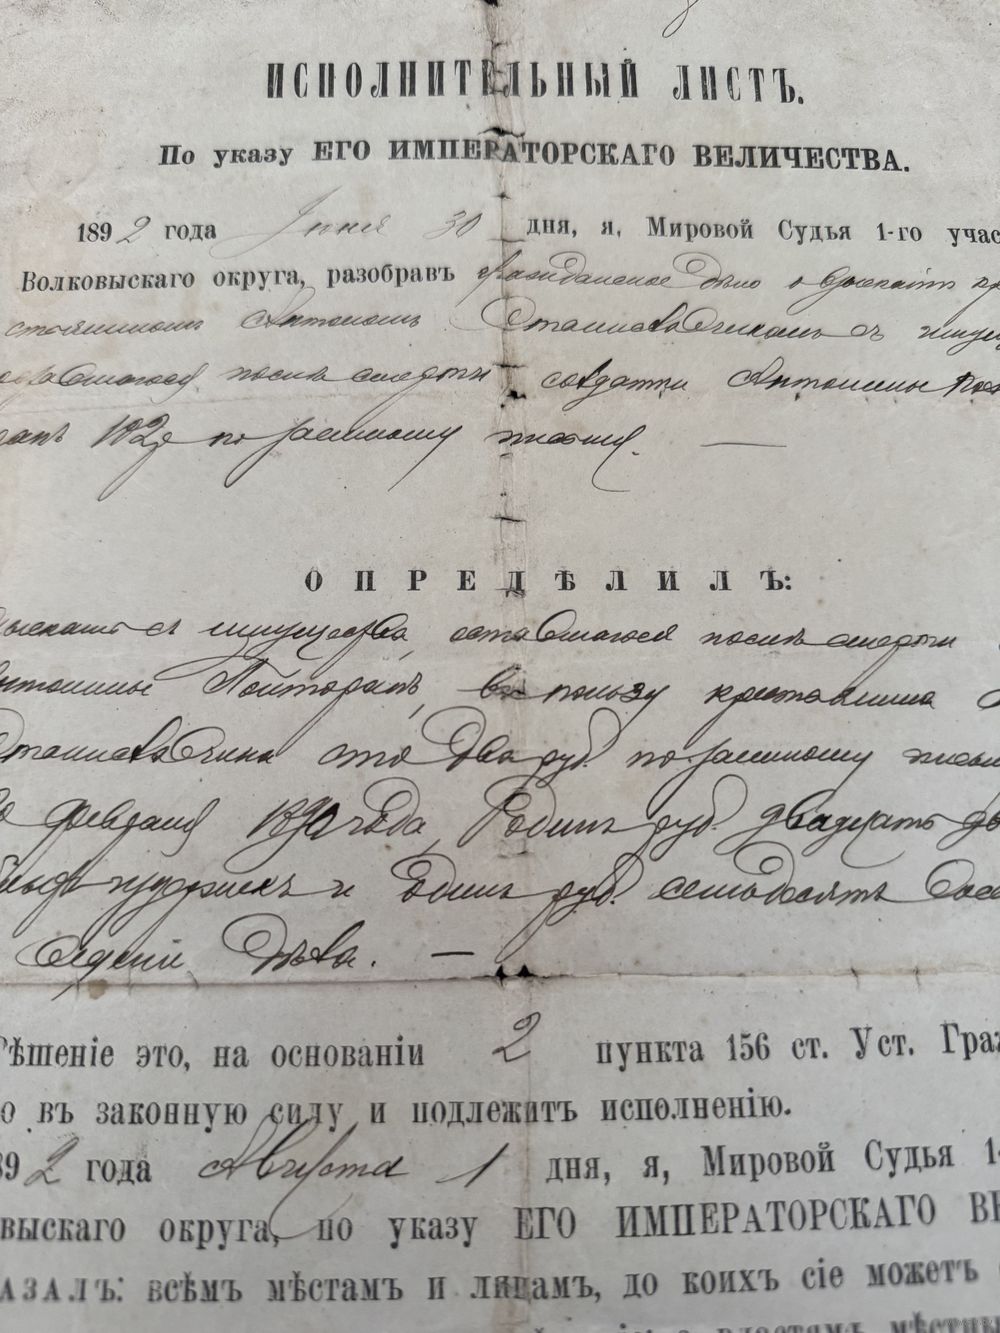 ИСПОЛНИТЕЛЬНЫЙ ЛИСТЪ.
По указу ЕГО ИМПЕРАТОРСКАГО ВЕЛИЧЕСТВА.
1892 года Іюня 30 дня, я, Мировой Судья 1-го учас
Волковыскаго округа, разобравъ гражданское дѣло о взыскании
Антономъ Станиславчикомъ съ имущ
после смерти солдатки Антонины
102 р по заемному письму.
ОПРЕДѢЛИЛЪ:
зыскать съ имущества, оставшагося после смерти
нтонины Полторакъ, въ пользу крестьянина
Станиславчика сто два руб. по заемному письм
февраля 1890 года, одинъ руб. двадцать
издержекъ и одинъ руб. семьдесятъ
веденіе дѣла.
Рѣшеніе это, на основаніи 2 пункта 156 ст. Уст. Граж
о въ законную силу и подлежитъ исполненію.
892 года Августа 1 дня, я, Мировой Судья 1-
выскаго округа, по указу ЕГО ИМПЕРАТОРСКАГО ВЕ
АЗАЛЪ: всѣмъ мѣстамъ и лицамъ, до коихъ сіе можетъ
властямъ мѣстн